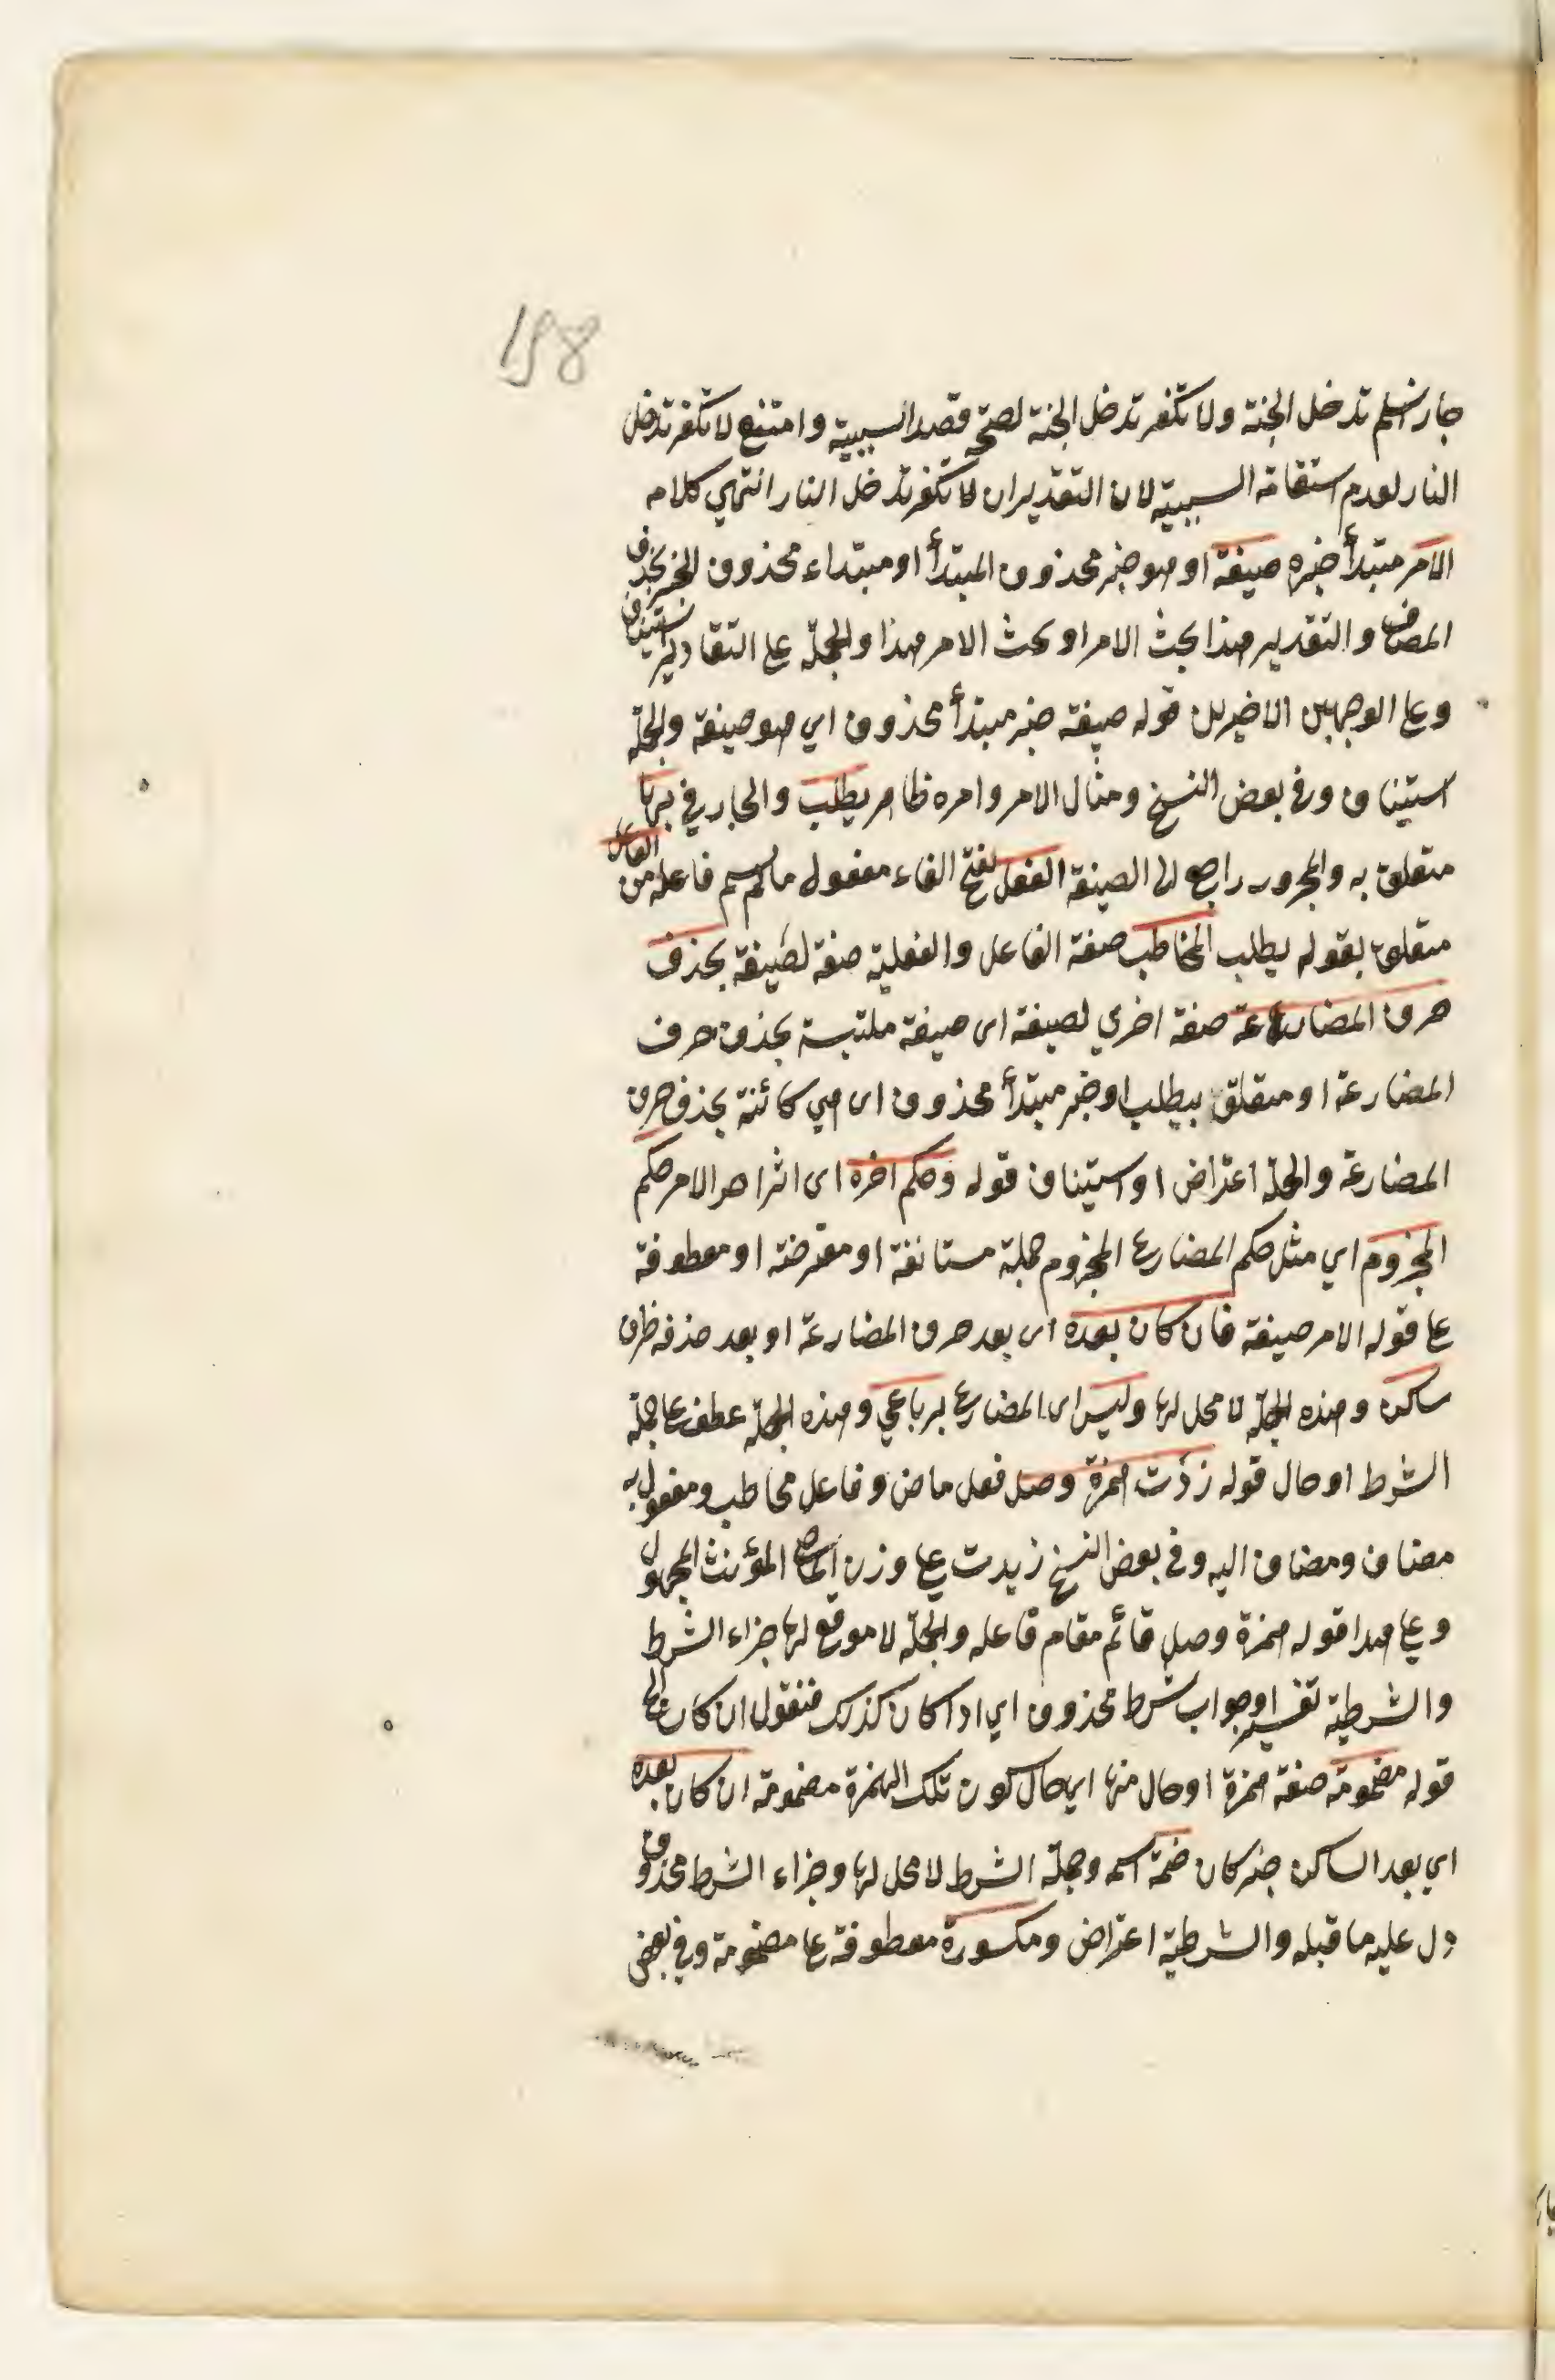 198
جاز اسلم تدخل الجنة ولا تكفر تدخل الجنة لصحة قصد السببية وامتنع لا تكفر تدخل
النار لعدم استقامة السببية لان التقدير ان لا تكفر تدخل النار انتهي كلامه
الامر مبتدأ خبره صيغة او هو خبر محذوف المبتدأ او مبتداء محذوف الخبر بحذف
المضاف والتقدير هذا بحث الامر او بحث الامر هذا والجملة على التقادير استيناف
وعلى الوجهين الاخيرين قوله صيغة خبر مبتدأ محذوف اي هو صيغة والجملة
استيناف وفي بعض النسخ ومثال الامر وامره ظاهر يطلب والجار في بها
متعلق به والمجرور راجع الى الصيغة الفعل بفتح الفاء مفعول ما لم يسم فاعله من الفاعل
متعلق بقوله يطلب المخاطب صفة الفاعل والفعلية صفة لصيغة بحذف
حرف المضارعة صفة اخري لصيغة اى صيغة ملتبسة بحذف حرف
المضارعة او متعلق بيطلب او خبر مبتدأ محذوف اى هي كائنة بحذف حرف
المضارعة والجملة اعتراض او استيناف قوله وحكم اخره اى اثر اهر الامر حكم
المجزوم اي مثل حكم المضارع المجزوم جملة مستانفة او معترضة او معطوفة
على قوله الامر صيغة فان كان بعده اى بعد حرف المضارعة او بعد حذفه ظرف
ساكن وهذه الجملة لا محل لها وليس اى المضارع برباعي وهذه الجملة عطف على جملة
الشرط او حال قوله زدت همزة وصل فعل ماض وفاعل مخاطب ومفعول به
مضاف ومضاف اليه وفي بعض النسخ زيدت على وزن الماضي المؤنث المجهول
وعلى هذا قوله همزة وصل قائم مقام فاعله والجملة لا موقع لها جزاء الشرط
والشرطية تفسير او جواب شرط محذوف اي اذا كان كذلك فنقول ان كان الخ
قوله مضمومة صفة همزة او حال منها اي حال كون تلك الهمزة مضمومة ان كان بعده
اي بعد الساكن خبر كان ضمة اسمه وجملة الشرط لا محل لها وجزاء الشرط محذوف
دل عليه ما قبله والشرطية اعتراض ومكسورة معطوفة على مضمومة وفي بعض